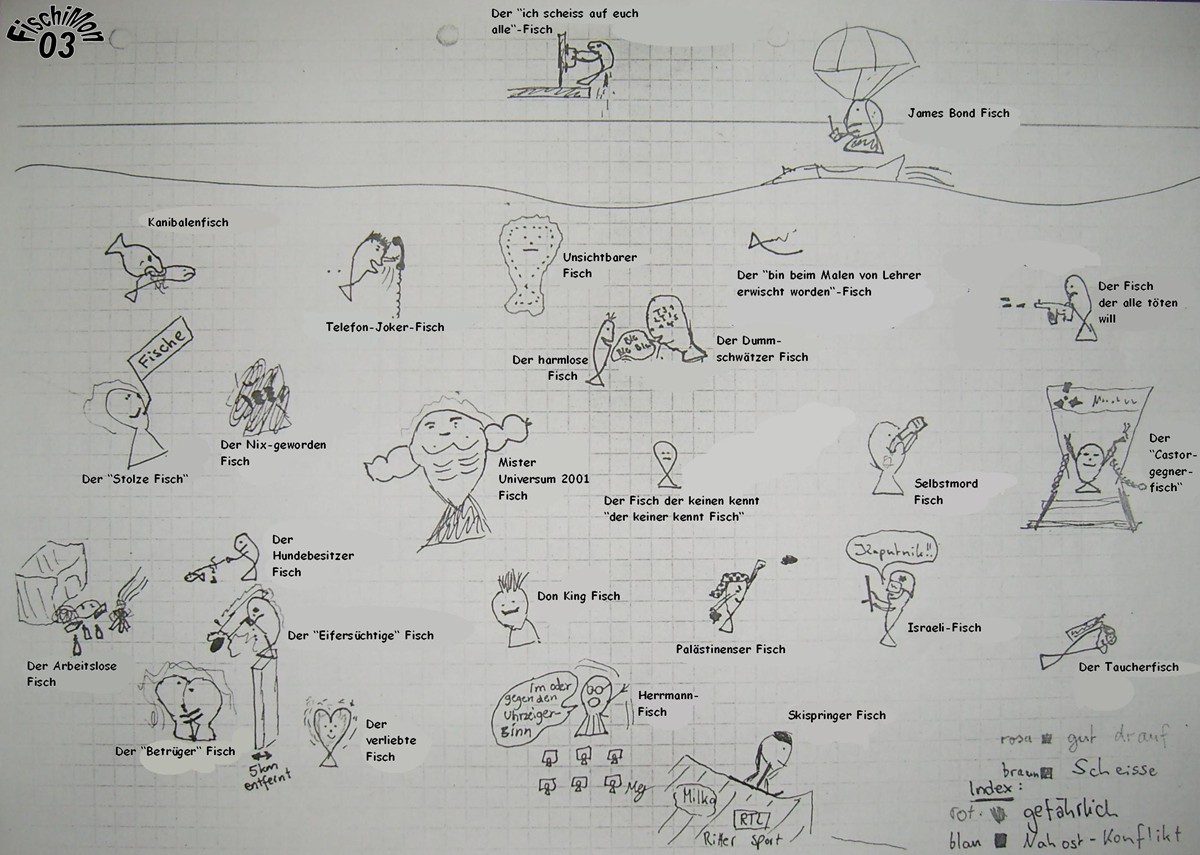 FischiMon
03
Der "ich scheiss auf euch
alle"-Fisch
James Bond Fisch
Kanibalenfisch
Telefon-Joker-Fisch
Unsichtbarer
Fisch
Der "bin beim Malen von Lehrer
erwischt worden"-Fisch
Der Fisch
der alle töten
will
Fische
Der "Stolze Fisch"
Der Nix-geworden
Fisch
Der harmlose
Fisch
Der Dumm-
schwätzer Fisch
Mister
Universum 2001
Fisch
Der Fisch der keinen kennt
"der keiner kennt Fisch"
Selbstmord
Fisch
Der
"Castor-
gegner-
fisch"
Der
Hundebesitzer
Fisch
Der Arbeitslose
Fisch
Der "Eifersüchtige" Fisch
Don King Fisch
Palästinenser Fisch
Kaputnik!!
Israeli-Fisch
Der Taucherfisch
Der "Betrüger" Fisch
5km
entfernt
Der
verliebte
Fisch
Im oder
gegen den
Uhrzeiger-
Sinn
Herrmann-
Fisch
Skispringer Fisch
Milka
RTL
Ritter Sport
rosa gut drauf
braun Scheisse
Index:
rot gefährlich
blau Nahost-Konflikt